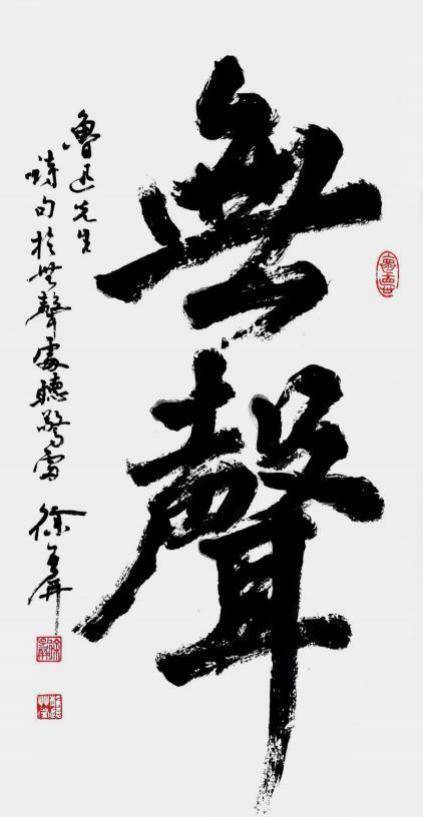 無聲
魯迅先生
詩句於無聲處聽驚雷 徐